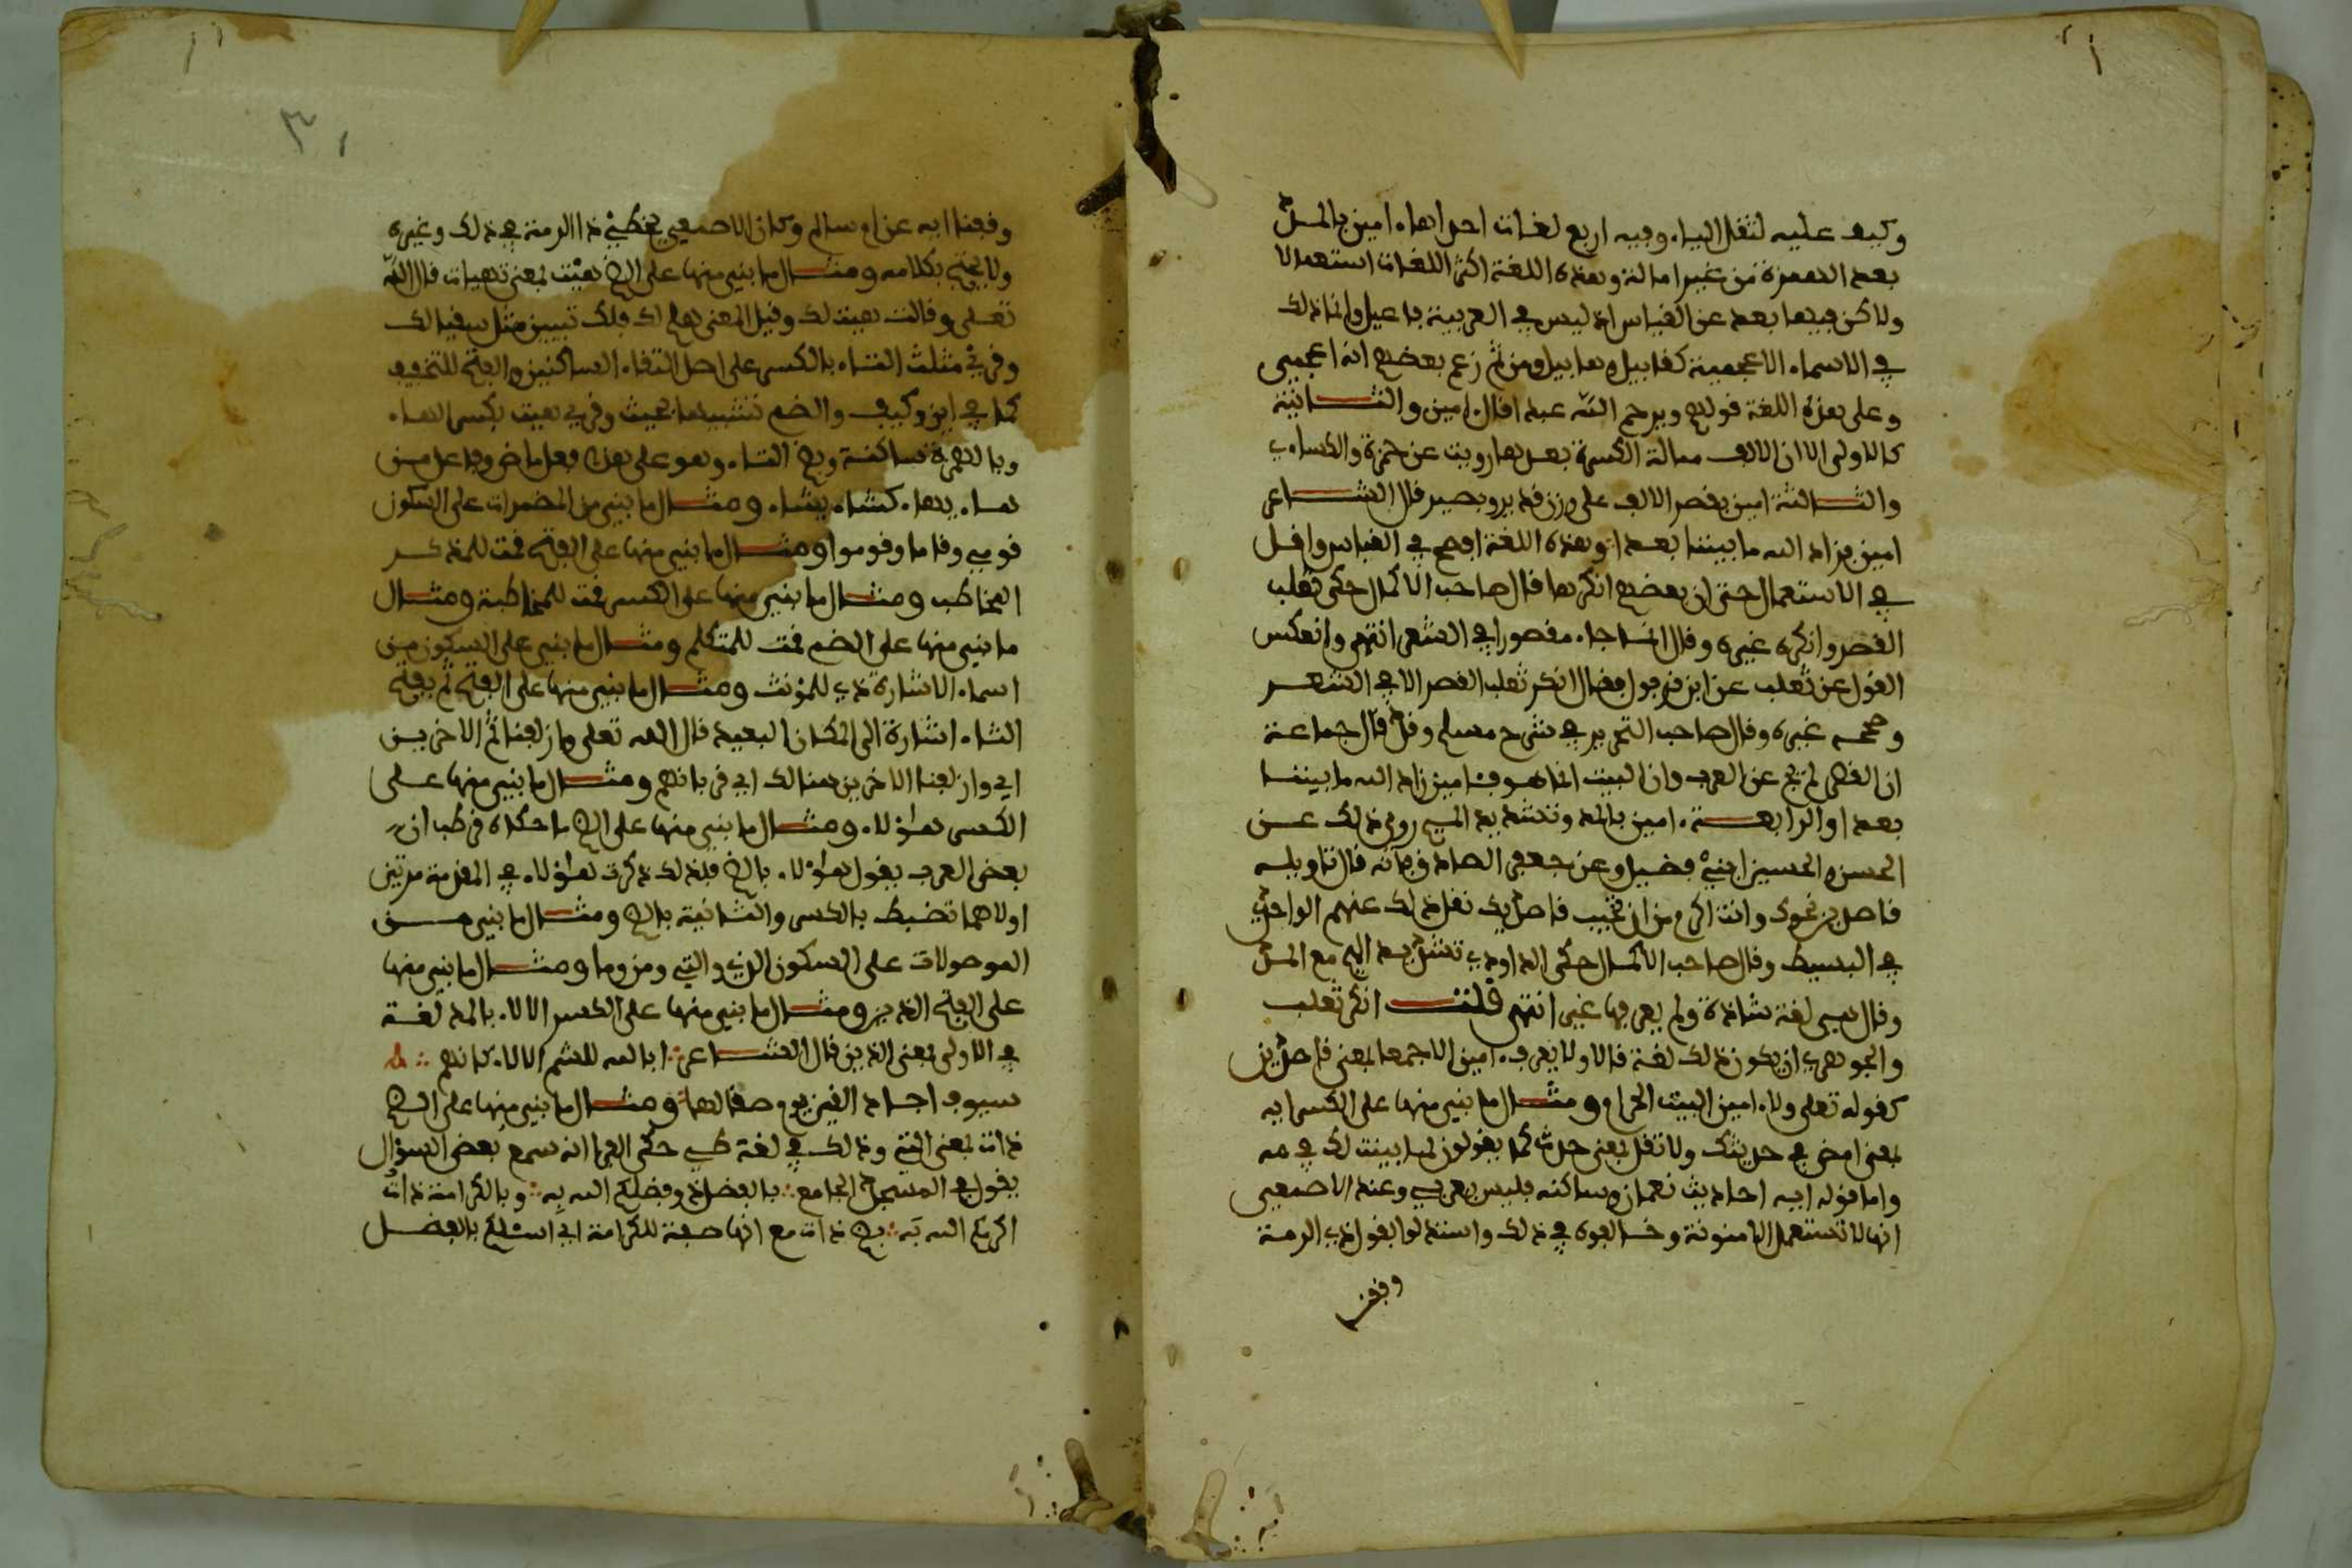 وكيف عليه لثقل الياء وفيه اربع لغات احداها امين بالمد
بعد الهمزة من غير امالة وهذه اللغة اكثر اللغات استعمالا
ولاكن فيها بعد عن القياس اذ ليس في العربية فاعيل وانما ذلك
في الاسماء الاعجمية كقابيل وهابيل ومن ثم زعم بعضهم انه اعجمي
وعلى هذه اللغة قولهم ويرحم الله عبدا قال امين والثانية
كالاولى الا ان الالف ممالة الكسرة بعدها رويت عن حمزة والكساءي
والثالثة امين بقصر الالف على وزن قدير وبصير قال الشاعر
امين فزاد الله ما بيننا بعدا وهذه اللغة افصح في القياس واقل
في الاستعمال حتى ان بعضهم انكرها قال صاحب الاكمال حكى ثعلب
القصر وانكره غيره وقال انما جاء مقصورا في الشعر انتهى وانعكس
القول عن ثعلب عن ابن فرقول فقال انكر ثعلب القصر الا في الشعر
وصححه غيره وقال صاحب التحرير في شرح مسلم وقد قال جماعة
ان القصر لم يجئ عن العرب وان البيت انما هو فامين زاد الله ما بيننا
بعدا والرابعة امين بالمد وتشديد الميم روي ذلك عن
الحسن والحسين ابني فضيل وعن جعفر الصادق وانه قال تاويله
قاصدين نحوك وانت اكرم من ان تخيب قاصديك نقل ذلك عنهم الواحدي
في البسيط وقال صاحب الاكمال حكى الداودي تشديد الميم مع المد
وقال هي لغة شاذة ولم يعرفها غيره انتهى قلت انكر ثعلب
والجوهري ان يكون ذلك لغة قالا ولا يعرف امين الا جمعا بمعنى قاصدين
كقوله تعلى ولا امين البيت الحرام ومثال ما بني منها على الكسر ايه
بمعنى امض في حديثك ولا تقل بمعنى حدث كما يقولون لما بينت لك في مه
واما قوله ايه احاديث نعمان وساكنه فليس بعربي وعند الاصمعي
انها لا تستعمل الا منونة وخالفوه في ذلك واستدلوا بقول ذي الرمة
وقفنا
وقفنا ايه عن ام سالم وكان الاصمعي يخطئ ذا الرمة في ذلك وغيره
ولا يحتج بكلامه ومثال ما بني منها على الضم هيت بمعنى تهيات قال الله
تعلى وقالت هيت لك وقيل المعنى هلم لك فلك تبيين مثل سقيا لك
وقرئ مثلث التاء بالكسر على اصل التقاء الساكنين والفتح للتخفيف
كما في اين وكيف والضم تشبيها بحيث وقرئ هيت بكسر الهاء
وبالهمزة ساكنة وضم التاء وهو على هذا فعل ماض وفاعل من
هاء يهاء كشاء يشاء ومثال ما بني من المضمرات على السكون
قومي وقاما وقوموا ومثال ما بني منها على الفتح قمت للمذكر
المخاطب ومثال ما بني منها على الكسر قمت للمخاطبة ومثال
ما بني منها على الضم قمت للمتكلم ومثال ما بني على السكون من
اسماء الاشارة ذي للمؤنث ومثال ما بني منها على الفتح ثم بفتح
الثاء اشارة الى المكان البعيد قال الله تعلى وازلفنا ثم الاخرين
اي وازلفنا الاخرين هنالك اي قربناهم ومثال ما بني منها على
الكسر هؤلاء ومثال ما بني منها على الضم ما حكاه قطرب ان
بعض العرب يقول هؤلاء بالضم فلذلك ذكرت هؤلاء في المقدمة مرتين
اولاهما تضبط بالكسر والثانية بالضم ومثال ما بني من
الموصولات على السكون الذي والتي ومن وما ومثال ما بني منها
على الفتح الذين ومثال ما بني منها على الكسر الالاء بالمد لغة
في الاولى بمعنى الذين قال الشاعر ابا لله للشم الالاء كانهم
سيوف اجاد القين يوما صقالها ومثال ما بني منها على الضم
ذات بمعنى التي وذلك في لغة طيء حكى الفرا انه سمع بعض السؤال
يقول في المسجد الجامع بالفضل ذو فضلكم الله به وبالكرامة ذات
اكرمكم الله به بضم ذات مع انها صفة للكرامة اي اسئلكم بالفضل